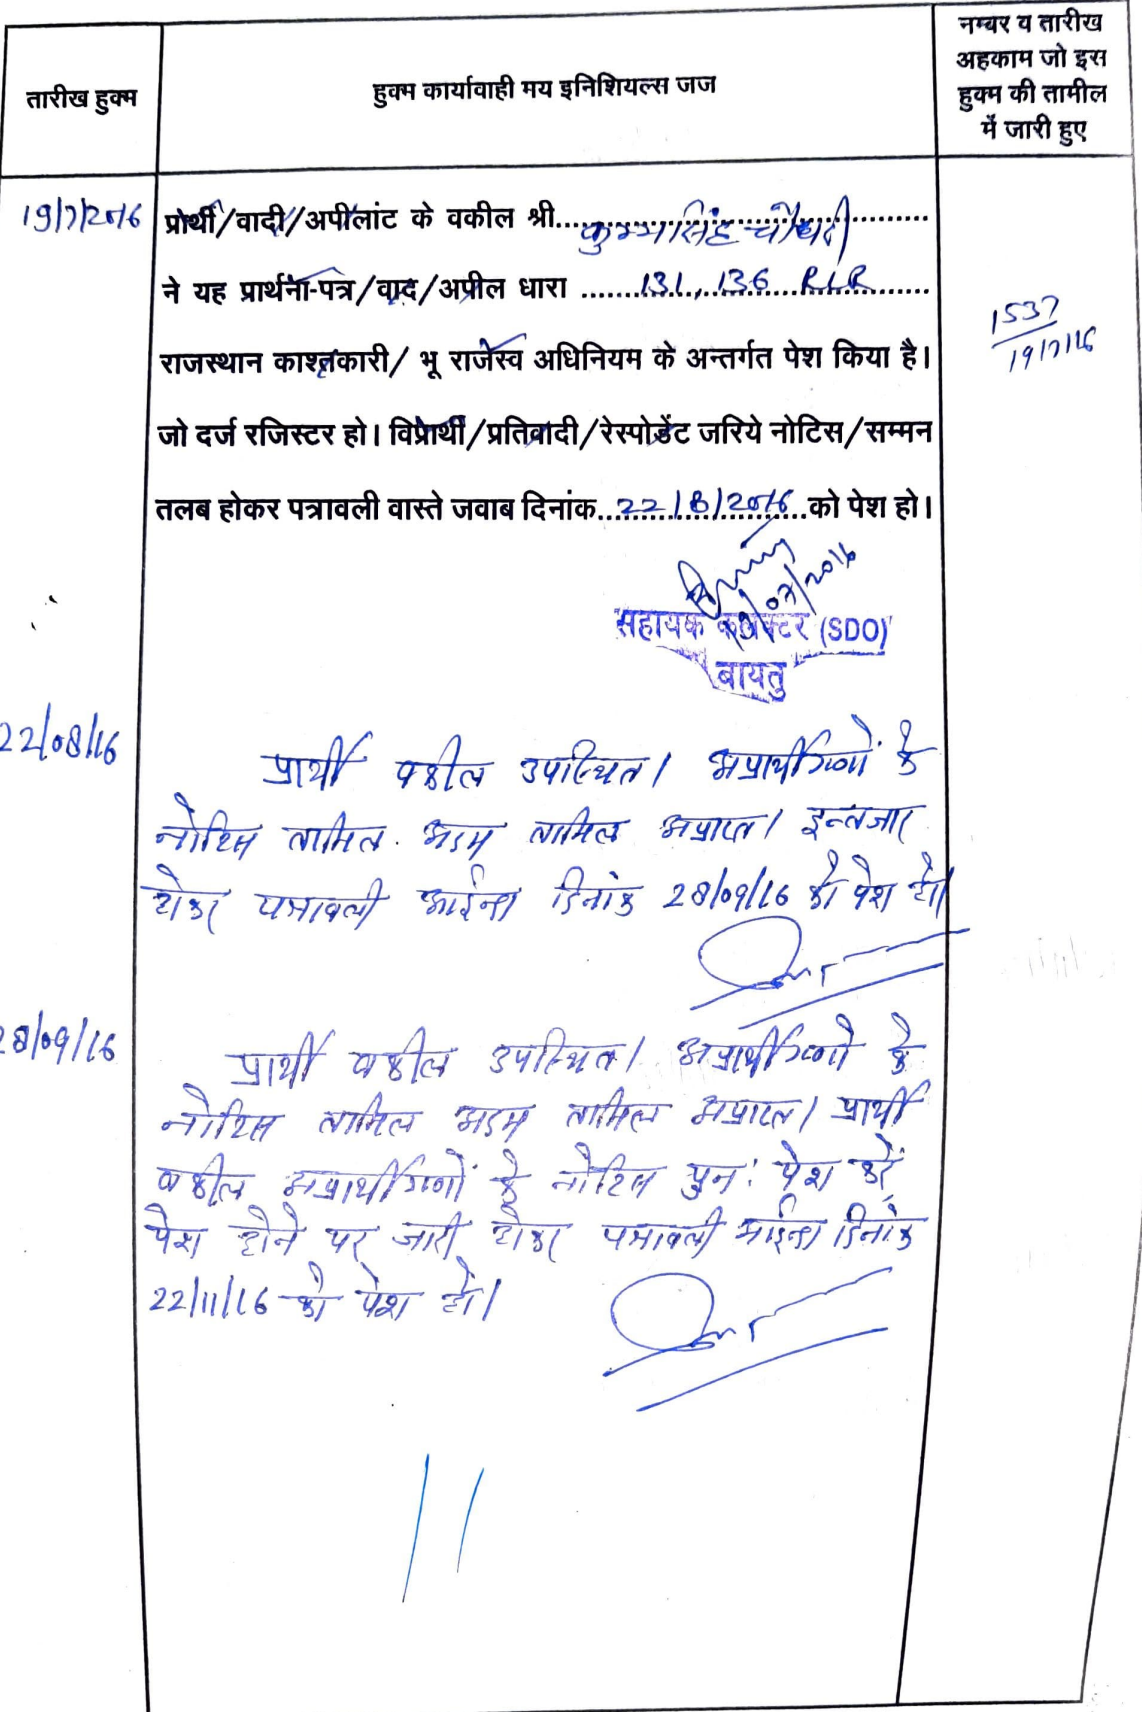 तारीख हुक्म
हुक्म कार्यावाही मय इनिशियल्स जज
नम्बर व तारीख
अहकाम जो इस
हुक्म की तामील
में जारी हुए
19/7/2016
प्रोर्थी/वादी/अपीलांट के वकील श्री कुम्भसिंह चौधरी
ने यह प्रार्थना-पत्र/वाद/अपील धारा 131, 136 RLR
1537
19/7/16
राजस्थान काश्तकारी/ भू राजस्व अधिनियम के अन्तर्गत पेश किया है।
जो दर्ज रजिस्टर हो। विप्रार्थी/प्रतिवादी/रेस्पोडेंट जरिये नोटिस/सम्मन
तलब होकर पत्रावली वास्ते जवाब दिनांक 22/8/2016 को पेश हो।
19/07/2016
सहायक कलेक्टर (SDO)
बायतु
22/08/16
प्रार्थी वकील उपस्थित। अप्रार्थीगणों के
नोटिस तामिल अदम तामिल अप्राप्त। इन्तजार
होकर पत्रावली आईन्दा दिनांक 28/09/16 को पेश हो।
28/09/16
प्रार्थी वकील उपस्थित। अप्रार्थीगणो के
नोटिस तामिल अदम तामिल अप्राप्त। प्रार्थी
वकील अप्रार्थीगणों के नोटिस पुन: पेश करें,
पेश होने पर जारी होकर पत्रावली आईन्दा दिनांक
22/11/16 को पेश हो।